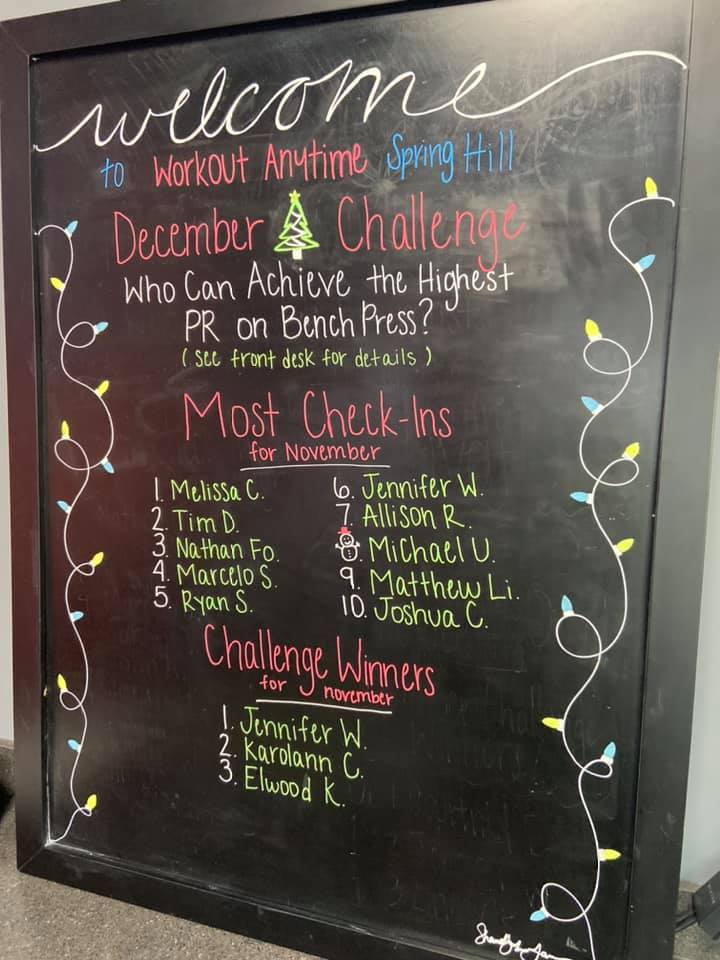 welcome
to Workout Anytime Spring Hill
December Challenge
Who Can Achieve the Highest
PR on Bench Press?
(see front desk for details)
Most Check-Ins
for November
1. Melissa C.
2. Tim D.
3. Nathan Fo.
4. Marcelo S.
5. Ryan S.
6. Jennifer W.
7. Allison R.
8. Michael U.
9. Matthew Li.
10. Joshua C.
Challenge Winners
for november
1. Jennifer W.
2. Karolann C.
3. Elwood K.